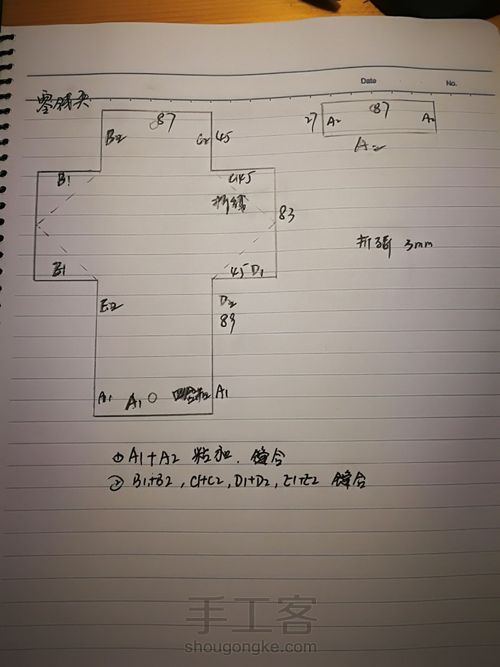 Date
No.
零钱夹
87
B2
C2 45
27 A2 87 A2
A2
B1
C1 45
折缝
83
折缝 3mm
B1
45 D1
E2
D2
83
A1 A1 A1
① A1+A2 粘加. 缝合
② B1+B2, C1+C2, D1+D2, E1+E2 缝合
手工客
shougongke.com